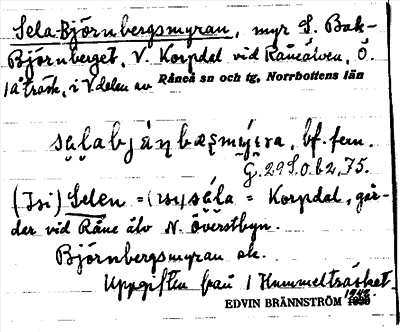 Sela-Björnbergsmyran, myr S. Bak-
Björnberget, V. Korpdal vid Råneälven, Ö.
i V delen av Råneå sn och tg, Norrbottens län
bf. fem.
G. 29 S.O. 62, 75.
(Isi) Selen = = Korpdal, går-
dar vid Råne älv N. Överstbyn.
Björnbergsmyran ok.
Uppgiften från 1 Hummelträsket.
EDVIN BRÄNNSTRÖM